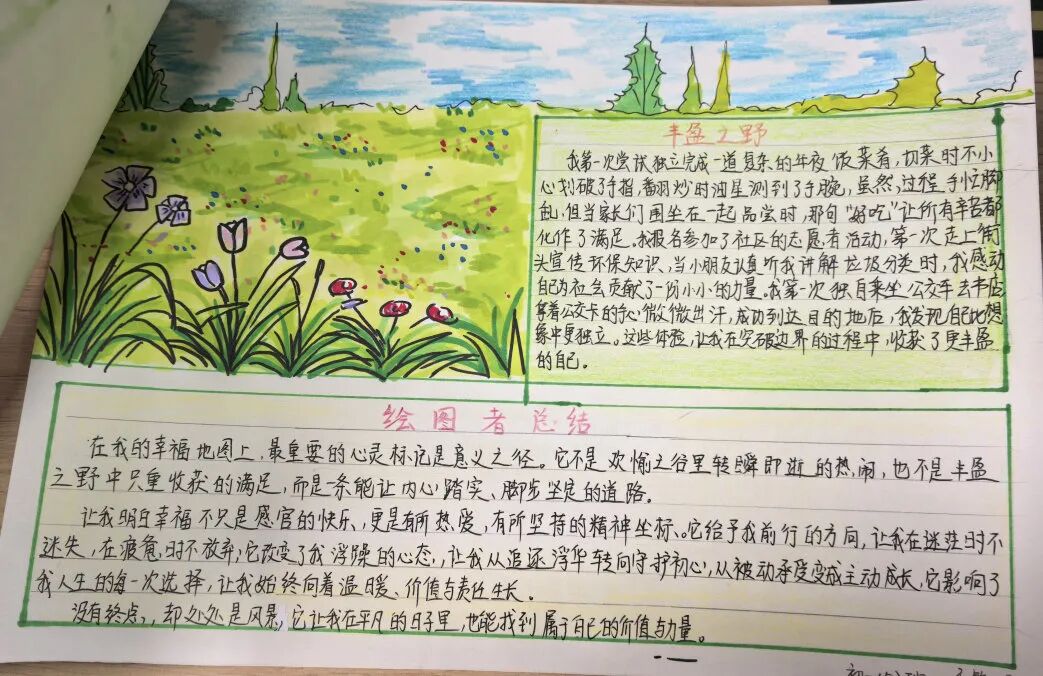 丰盈之野
我第一次尝试独立完成一道复杂的年夜饭菜肴,切菜时不小
心划破了手指,翻炒时油星溅到了手腕,虽然,过程手忙脚
乱,但当家长们围坐在一起品尝时,那句“好吃”让所有辛苦都
化作了满足。我报名参加了社区的志愿者活动,第一次走上街
头宣传环保知识,当小朋友认真听我讲解垃圾分类时,我感动
自己为社会贡献了一份小小的力量。我第一次独自来坐公交车去书店
拿着公交卡的手心微微出汗,成功到达目的地后,我发现自己比想
象中更独立。这些体验,让我在突破边界的过程中,收获了更丰盈
的自己。
绘图者总结
在我的幸福地图上,最重要的心灵标记是意义之径。它不是欢愉之谷里转瞬即逝的热闹,也不是丰盈
之野中只重收获的满足,而是一条能让内心踏实、脚步坚定的道路。
让我明白幸福不只是感官的快乐,更是有所热爱,有所坚持的精神坐标。它给予我前行的方向,让我在迷茫时不
迷失,在疲惫时不放弃;它改变了我浮躁的心态,让我从追逐浮华转向守护初心,从被动承受变成主动成长,它影响了
我人生的每一次选择,让我始终向着温暖、价值与责任生长。
没有终点,却处处是风景,它让我在平凡的日子里,也能找到属于自己的价值与力量。